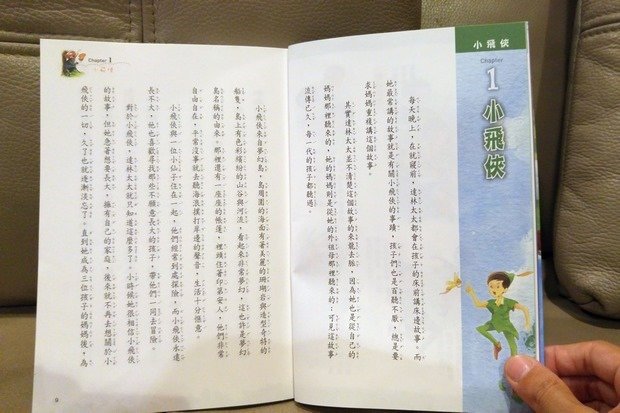 小飛俠
Chapter
1
小飛俠
每天晚上，在就寢前，達林太太都會在孩子的床前講床邊故事。而
她最常講的故事就是有關小飛俠的事蹟，孩子們也是百聽不厭，總是要
求媽媽重複講這個故事。
其實達林太太並不清楚這個故事的來龍去脈，因為她也是從自己的
媽媽那裡聽來的，她的媽媽則是從她的外祖母那裡聽來的；可見這故事
流傳已久，每一代的孩子都聽過。
Chapter 1
小飛俠
小飛俠來自夢幻島，島周圍的海面有著美麗的珊瑚岩與造型奇特的
船隻，島上有色彩繽紛的山谷與河流，看起來非常夢幻，這也許是夢幻
島名稱的由來。那裡還有一座座的帳篷，裡頭住著印第安人，他們非常
自由自在，平常沒事就去聽海浪撲打岸邊的聲音，生活十分愜意。
小飛俠與一位小仙子住在一起，他們經常到處探險。而小飛俠永遠
長不大，他也喜歡尋找那些不願意長大的孩子，帶他們一同去冒險。
對於小飛俠，達林太太就只知道這麼多了。小時候她很相信小飛俠
的故事，但她急著想要長大，擁有自己的家庭，後來就不再去想關於小
飛俠的一切，久了也就逐漸淡忘了。直到她成為三位孩子的媽媽後，為
9